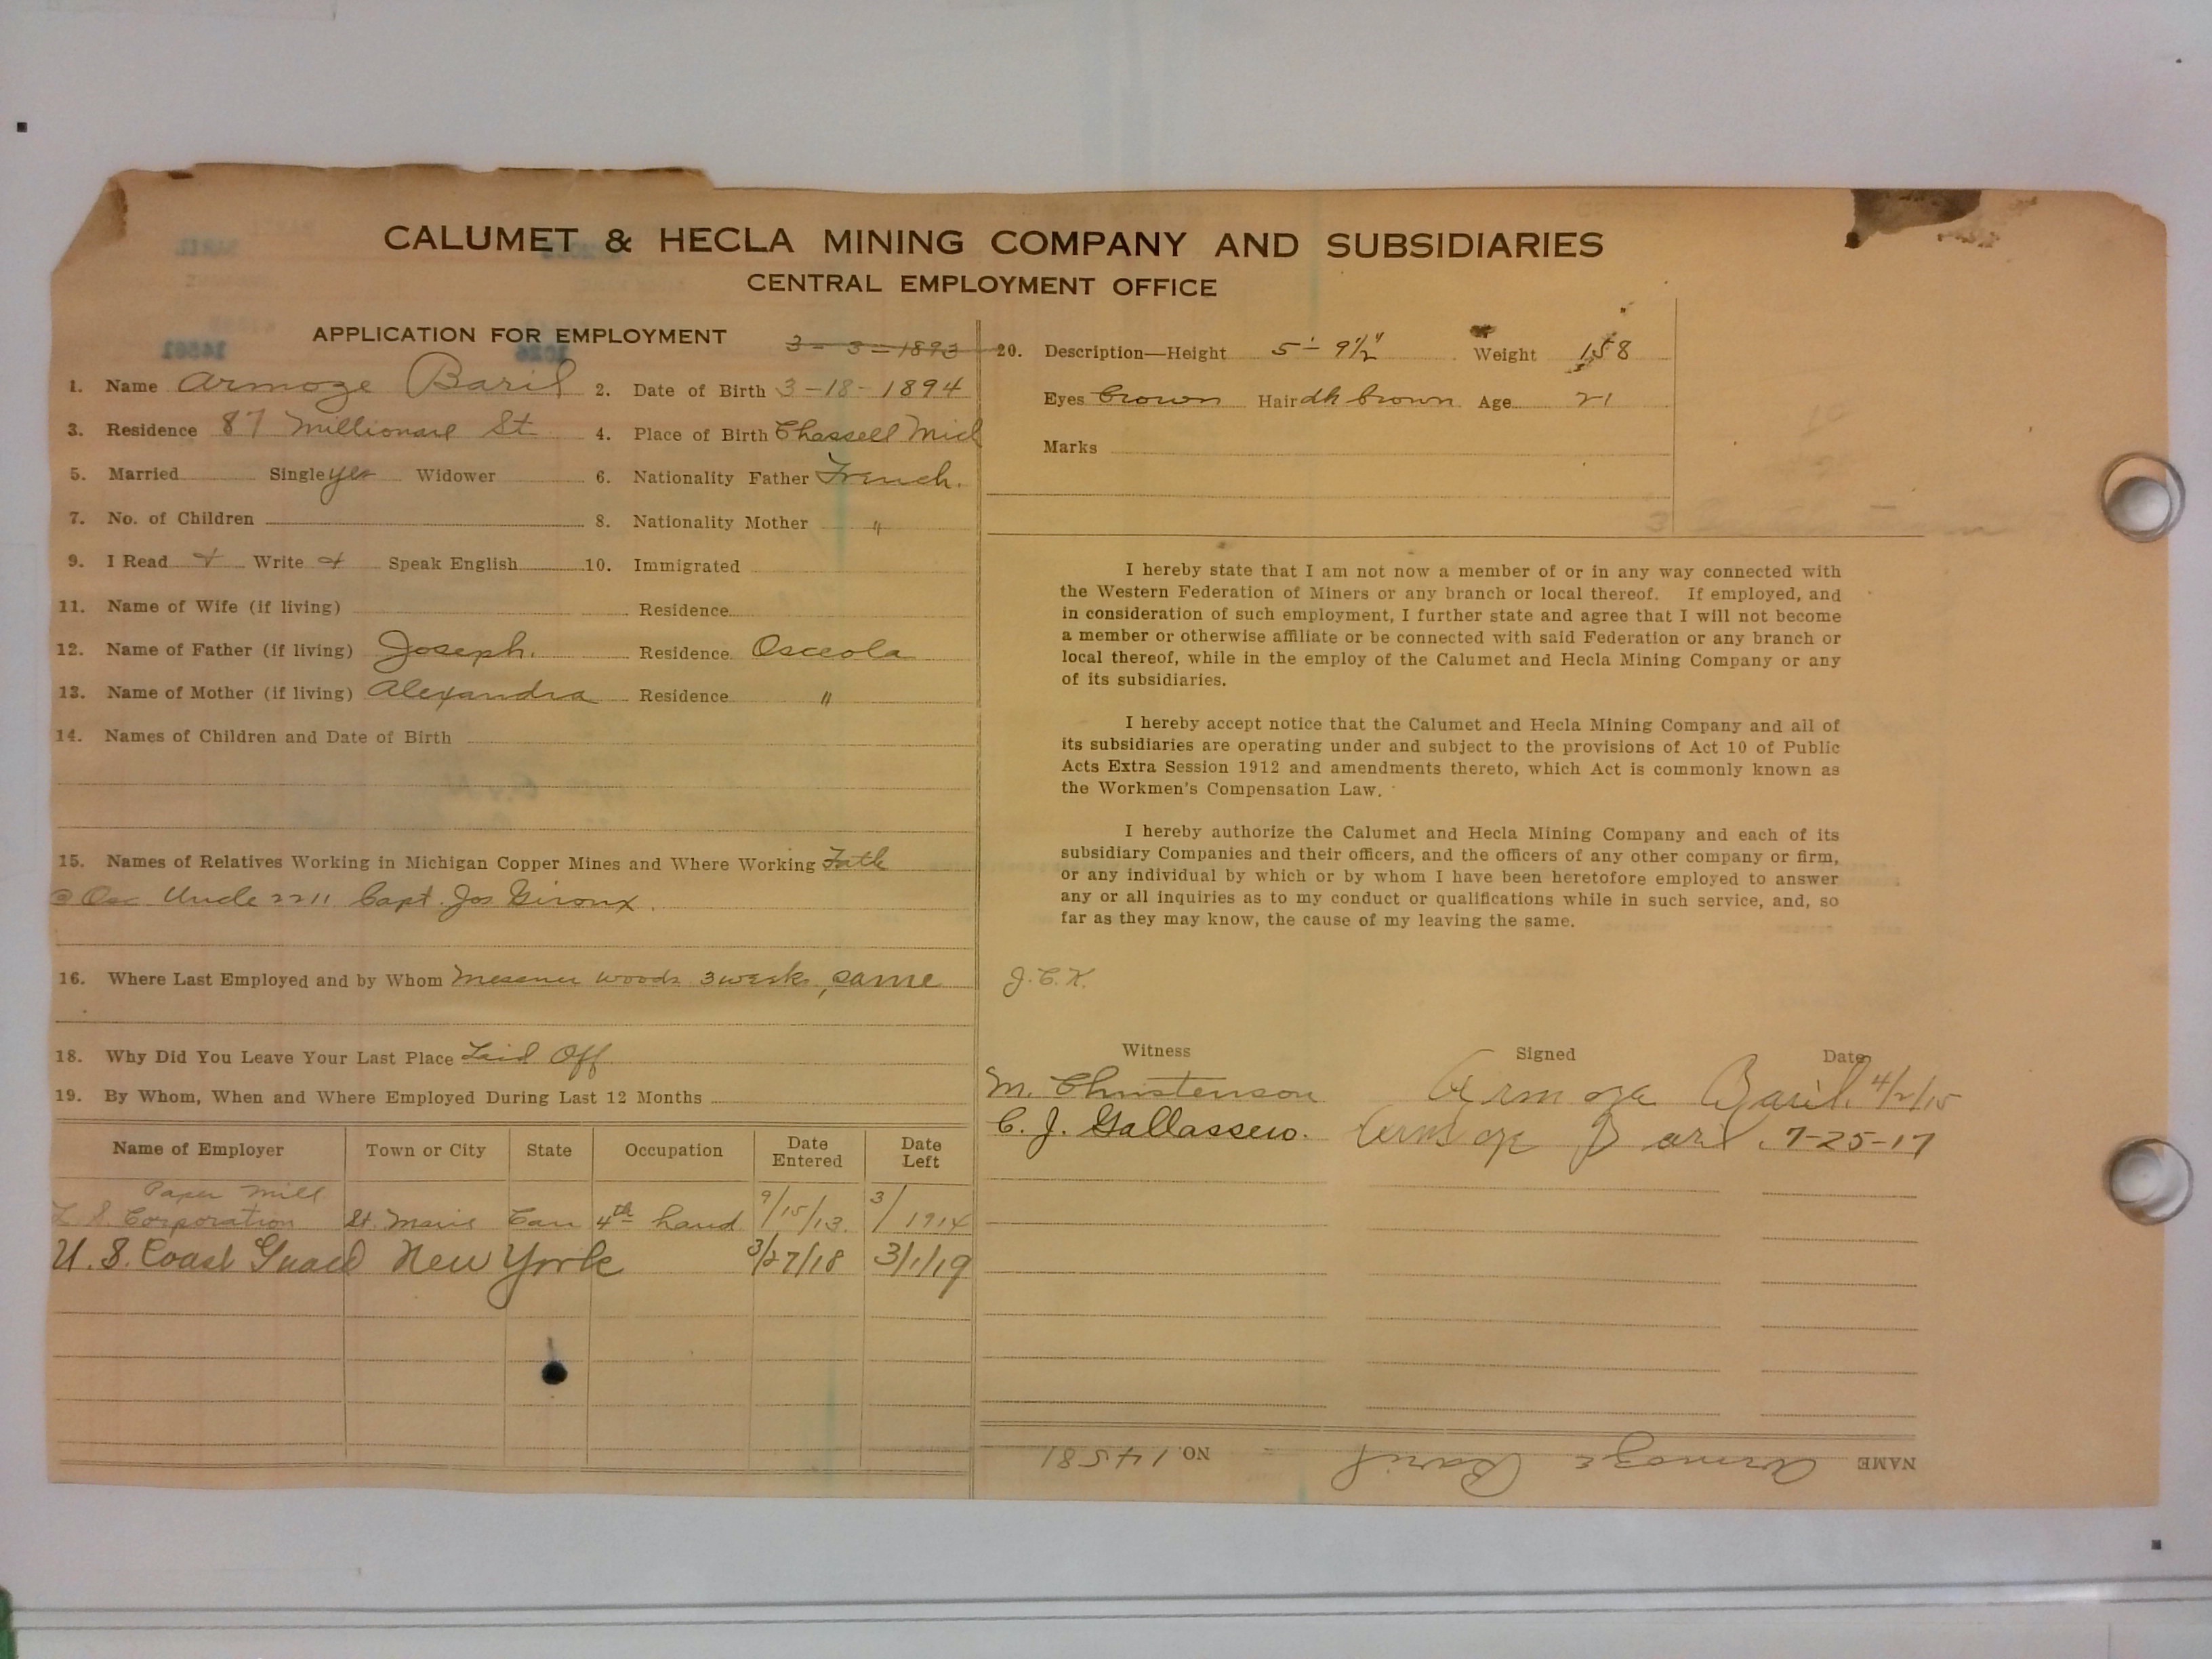 CALUMET & HECLA MINING COMPANY AND SUBSIDIARIES
CENTRAL EMPLOYMENT OFFICE
APPLICATION FOR EMPLOYMENT
3-3-1893
1. Name Armoze Baril 2. Date of Birth 3-18-1894
3. Residence 87 Millionare St 4. Place of Birth Chassell Mich
5. Married Single yes Widower 6. Nationality Father French.
7. No. of Children 8. Nationality Mother "
9. I Read + Write + Speak English 10. Immigrated
11. Name of Wife (if living) Residence
12. Name of Father (if living) Joseph. Residence Osceola
13. Name of Mother (if living) Alexandra Residence "
14. Names of Children and Date of Birth
15. Names of Relatives Working in Michigan Copper Mines and Where Working Fath
@ Osc Uncle 2211 Capt. Jos Giroux.
16. Where Last Employed and by Whom Messner woods 3 weeks, same
18. Why Did You Leave Your Last Place Laid Off
19. By Whom, When and Where Employed During Last 12 Months
Name of Employer Town or City State Occupation Date Entered Date Left
Paper Mill
L. S. Corporation St. Marie Can 4th hand 9/15/13. 3/1914
U. S. Coast Guard New York 3/27/18 3/1/19
20. Description—Height 5'-9½" Weight 158
Eyes brown Hair dk brown Age 21
Marks
I hereby state that I am not now a member of or in any way connected with
the Western Federation of Miners or any branch or local thereof. If employed, and
in consideration of such employment, I further state and agree that I will not become
a member or otherwise affiliate or be connected with said Federation or any branch or
local thereof, while in the employ of the Calumet and Hecla Mining Company or any
of its subsidiaries.
I hereby accept notice that the Calumet and Hecla Mining Company and all of
its subsidiaries are operating under and subject to the provisions of Act 10 of Public
Acts Extra Session 1912 and amendments thereto, which Act is commonly known as
the Workmen's Compensation Law.
I hereby authorize the Calumet and Hecla Mining Company and each of its
subsidiary Companies and their officers, and the officers of any other company or firm,
or any individual by which or by whom I have been heretofore employed to answer
any or all inquiries as to my conduct or qualifications while in such service, and, so
far as they may know, the cause of my leaving the same.
J.C.K.
Witness Signed Date
M. Christenson Armoze Baril. 4/2/15
C. J. Gallassero. Armoze Baril. 7-25-17
NAME Armoze Baril NO. 14581